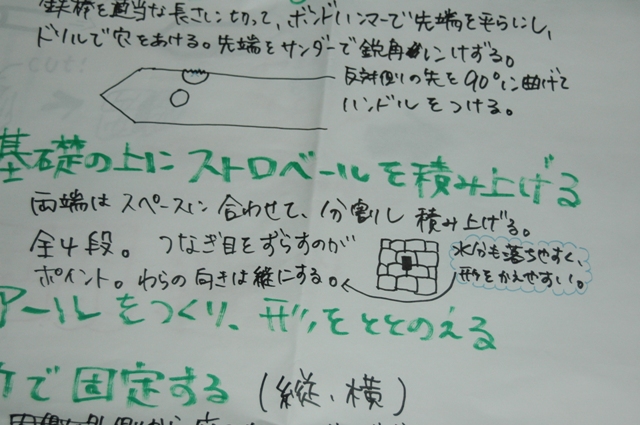 鉄棒を適当な長さに切って、ボンドハンマーで先端を平らにし、
ドリルで穴をあける。先端をサンダーで鋭角にけずる。
反対側の先を90°に曲げて
ハンドルをつける。
基礎の上にストロベールを積み上げる
両端はスペースに合わせて、分割し積み上げる。
全4段。つなぎ目をずらすのが
ポイント。わらの向きは縦にする。
水分も落ちやすく、
形をかえやすい。
アールをつくり、形をととのえる
で固定する(縦、横)